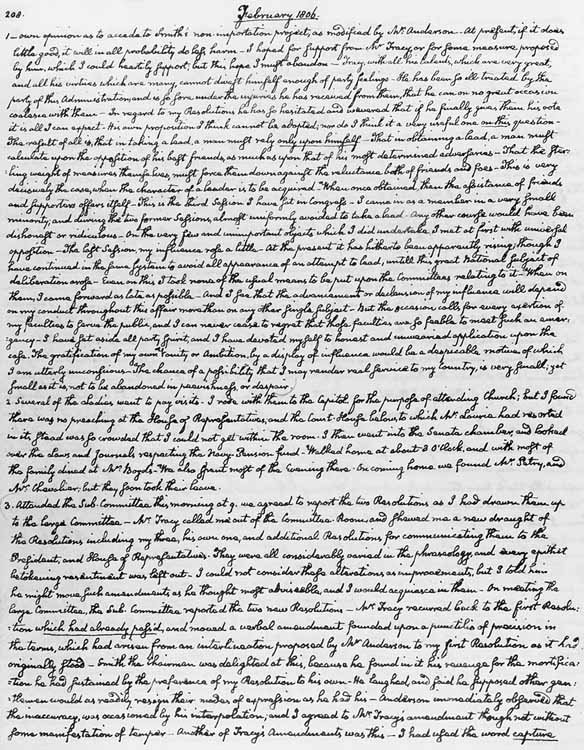 208.
February 1806.
1 — own opinion as to accede to Smith's non-importation project, as modified by Mr. Anderson. At present, if it does
little good, it will in all probability do less harm — I hoped for support from Mr Tracy, or for some measure proposed
by him, which I could heartily support; but this hope I must abandon — Tracy, with all his talents, which are very great,
and all his virtues which are many, cannot divest himself enough of party feelings — He has been so ill treated by the
party of this Administration, and is so sore under the injuries he has received from them, that he can on no great occasion
coalesce with them — In regard to my Resolutions he has so hesitated and wavered that if he finally gives them his vote
it is all I can expect — His own proposition I think cannot be adopted; nor do I think it a very useful one on this question —
The result of all is, that in taking a lead, a man must rely only upon himself — That in obtaining a lead, a man must
calculate upon the opposition of his best friends, as much as upon that of his most determined adversaries — That the ster-
ling weight of measures themselves, must force them down against the reluctance both of friends and foes — This is very
decisively the case, when the character of a leader is to be acquired. When once obtained, then the assistance of friends
and supporters offers itself — This is the third Session I have sat in Congress — I came in as a member in a very small
minority, and during the two former Sessions, almost uniformly avoided to take a lead — Any other course would have been
dishonest or ridiculous — On the very few and unimportant objects which I did undertake, I met at first with universal
opposition — The last Session, my influence rose a little — At the present it has hitherto been apparently rising; though I
have continued in the same system to avoid all appearance of an attempt to lead, untill this great National subject of
deliberation arose — Even on this I took none of the usual means to be put upon the Committees relating to it — When on
them, I came forward as late as possible — And I see that the advancement or declension of my influence will depend
on my conduct throughout this affair more than on any other single subject — But the occasion calls for every exertion of
my faculties to serve the public, and I can never cease to regret that those faculties are so feeble to meet such an emer-
gency — I have set aside all party spirit, and I have devoted myself to honest and unwearied application upon the
case. The gratification of my own Vanity or Ambition, by a display of influence would be a despicable motive, of which
I am utterly unconscious. The chance of a possibility that I may render real service to my Country, is very small; yet
small as it is, not to be abandoned in peevishness, or despair.
2. Several of the Ladies went to pay visits — I rode with them to the Capitol for the purpose of attending Church; but I found
there was no preaching at the House of Representatives, and the Court-House below, to which Mr. Laurie had resorted
in its stead was so crowded that I could not get within the room — I then went into the Senate chamber, and looked
over the Laws and Journals respecting the Navy-Pension fund — Walked home at about 3 O'Clock, and with most of
the family dined at Mr. Boyd's — We also spent most of the Evening there — On coming home we found Mr. Petry, and
Mr. Chevalier; but they soon took their leave.
3. Attended the Sub-Committee this morning at 9. we agreed to report the two Resolutions as I had drawn them up
to the large Committee — Mr. Tracy called me out of the Committee-Room, and shewed me a new draught of
the Resolutions including my three, his own one, and additional Resolutions for communicating them to the
President, and House of Representatives. They were all considerably varied in the phraseology, and every epithet
betokening resentment was left out — I could not consider these alterations as improvements, but I told him
he might move such amendments as he thought most adviseable, and I would acquiesce in them — On meeting the
large Committee, the Sub-Committee reported the two new Resolutions — Mr. Tracy recurred back to the first Resolu-
-tion which had already pass'd, and moved a verbal amendment founded upon a punctilio of precision in
the terms, which had arisen from an interlineation proposed by Mr Anderson to my first Resolution as it had
originally stood — Smith the chairman was delighted at this, because he found in it his revenge for the mortifica-
-tion he had sustained by the preference of my Resolution to his own — He laughed, and said he supposed other gen-
tlemen would as readily resign their modes of expression as he had his — Anderson immediately observed that
the inaccuracy, was occasioned by his interpolation, and I agreed to Mr Tracy's amendment though not without
some manifestation of temper — Another of Tracy's Amendments was this — I had used the word capture